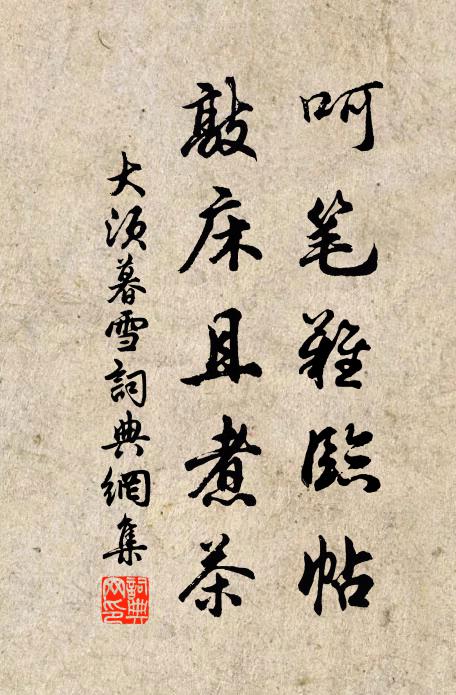 呵笔難臨帖
敲床且煮茶
大須暮雪詞典網集
詞典網印